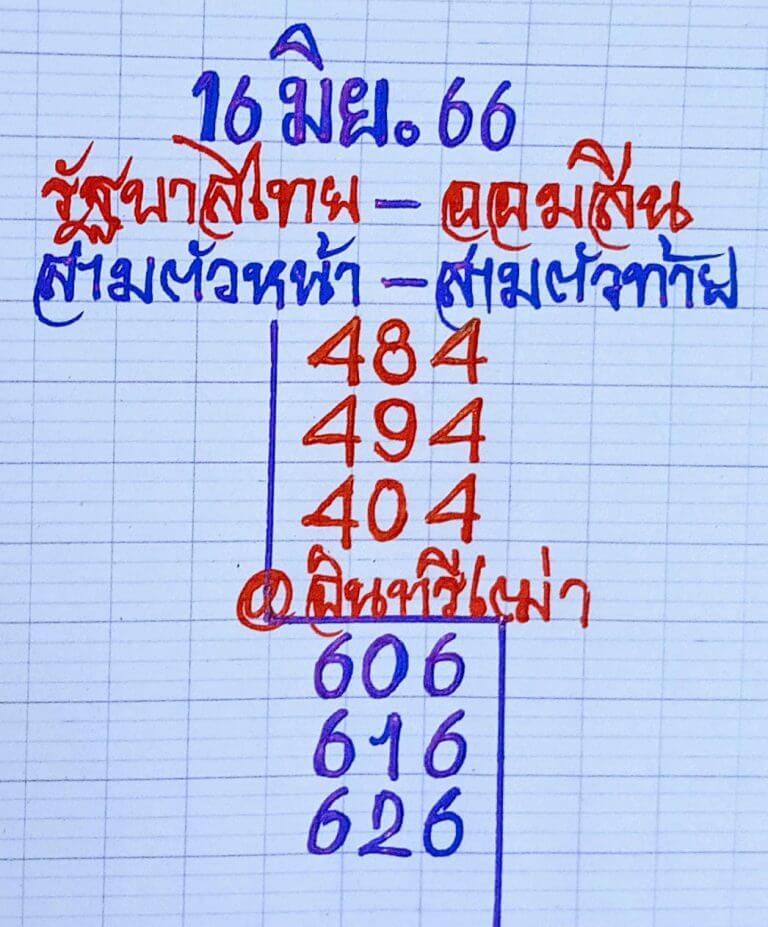 16 มิย. 66
รัฐบาลไทย - ออมสิน
สามตัวหน้า - สามตัวท้าย
484
494
404
อินทรีเฒ่า
606
616
626